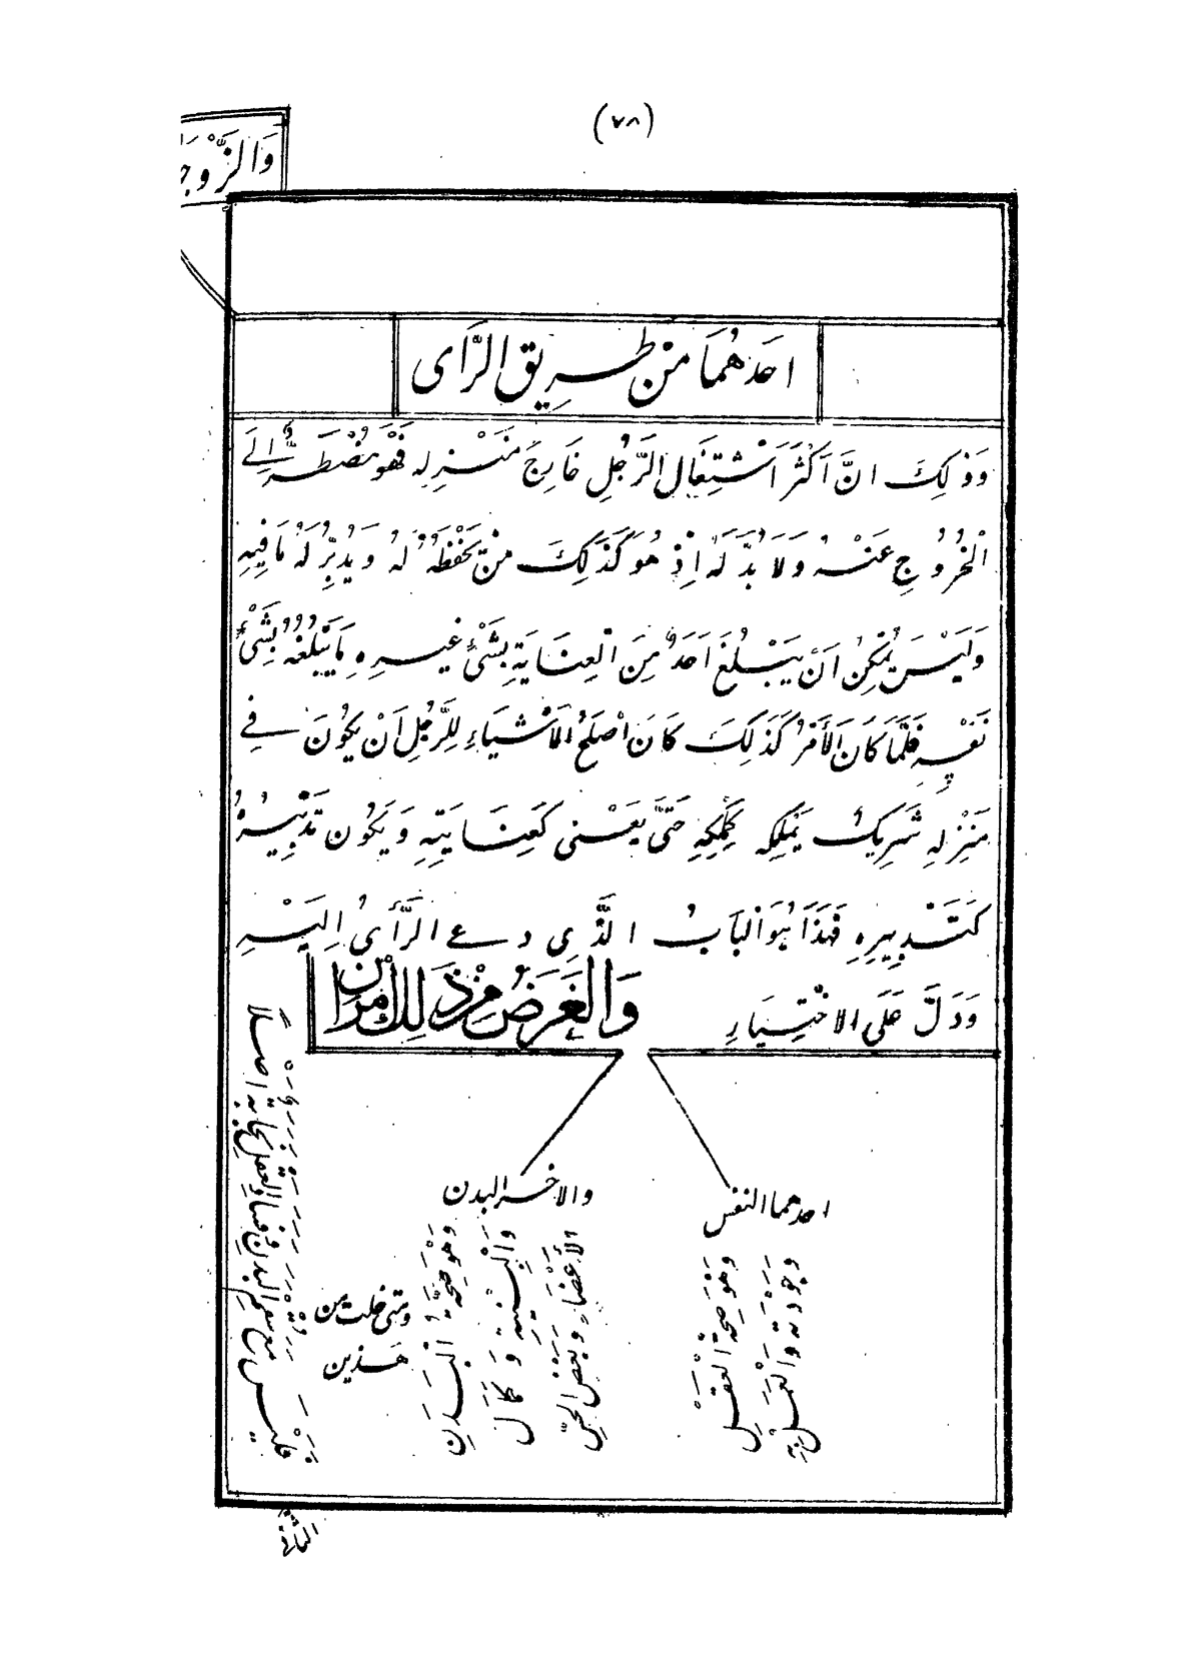 (٧٨)
وَالزَّوجَ
احَدهُمَا مِنْ طَرِيق الرَّاى
وَذ لِكَ انَّ اَكثَرَ اَشْتِغَال الرَّجُلِ خَارِجَ مَنْزِلِه فَهُوَ مُضْطَرٌّ اِلَے
الْخُرُوُجِ عَنْهُ وَلَا بُدَّ لَهُ اِذْ هُوَ كَذَلِكَ مَنْ يَحْفَظُهُ لَهُ وَيُدَبِّرُ لَهُ مَا فِيْهِ
وَلَيْسَ يُمْكِنُ اَنْ يَبْلُغَ اَحَدٌ مِنَ الْعِنَايَةِ بِشَىْءٍ غَيْرِهِ مَا يَبْلُغُهُ بِشَىْءِ
نَفْسِهِ فَلَمَّا كَانَ الأَمْرُ كَذَلِكَ كَانَ اَصْلَحُ الْاَشْيَاءِ لِلرَّجُلِ اَنْ يَكُوُنَ فِے
مَنْزِلِهِ شَرِيكٌ يَمْلِكُه كَمِلْكِهِ حَتَّى يَعْنى كَعِنَايَتِهِ وَيَكُوُن تَدْبِيْرُهُ
كَتَدْبِيرِهِ فَهَذَا هُوَ الْبَابُ الَّذِى دعے الرَّأىُ اِلَيْهِ
وَدَلَّ عَلَى الاخْتِيَارِ
وَالغَرَضُ مِنْ ذَلِكَ امْرَان
احدهما النفس
وَهُوَ صِحَّةُ الْعَقْلِ
وَجَوْدَتَه وَالْعَمَلُ بِهِ
والاخر البدن
وَهُوَ صِحَّةُ الْبَدَنِ
وَالْبِنْيَةِ وَكَمَال
الأَعْضَاءِ وَبَعْضُ الْحِسِّ
ومتى خلت من
هذين
فَلَيْسَ مع سقم البدن وفساد العقل نجابة اصلاً
الثانى